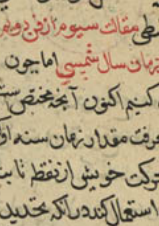 مقالت سیوم از فن دویم
زمان سال شمسی اما چون
کنیم اکنون آنچه مختص
معرفت مقدار زمان سنه
حرکت خویش از نقطه تا
استعمال کنند و آنکه بتحدید